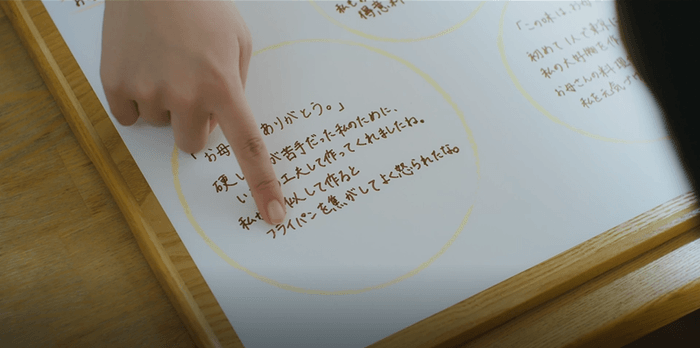 得意料
「お母 ありがとう。」
硬 が苦手だった私のために、
い 工夫して作ってくれましたね。
私 似して作ると
フライパンを焦がしてよく怒られたな。
「この味は、
初めて1人で
私の大好物を作
お母さんの料理
私を元気